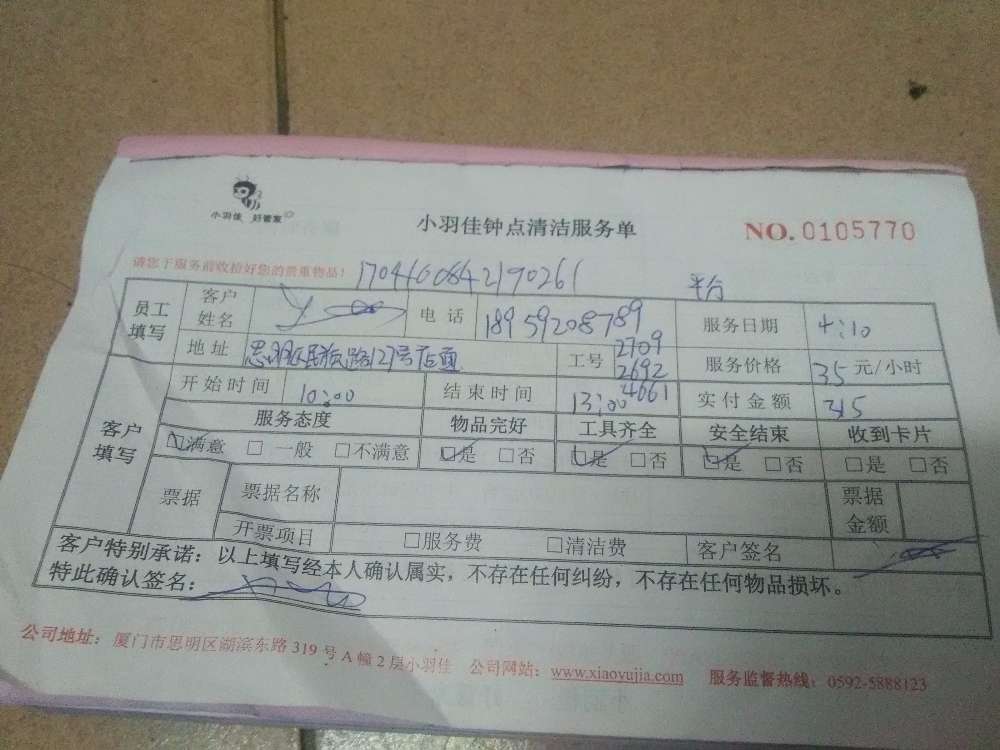 小羽佳 好管家
小羽佳钟点清洁服务单
NO.0105770
请您于服务前收拾好您的贵重物品!
1704100842190261
平台
员工填写 客户姓名 电话 18959208789 服务日期 4:10
地址 127号店面 工号 2709 2692 4661 服务价格 35 元/小时
客户填写 开始时间 10:00 结束时间 13:00 实付金额 315
服务态度 物品完好 工具齐全 安全结束 收到卡片
☑满意 □一般 □不满意 ☑是 □否 ☑是 □否 ☑是 □否 □是 □否
票据 票据名称 票据金额
开票项目 □服务费 □清洁费 客户签名
客户特别承诺：以上填写经本人确认属实，不存在任何纠纷，不存在任何物品损坏。
特此确认签名：
公司地址：厦门市思明区湖滨东路 319 号 A 幢 2 层小羽佳 公司网站：www.xiaoyujia.com 服务监督热线：0592-5888123